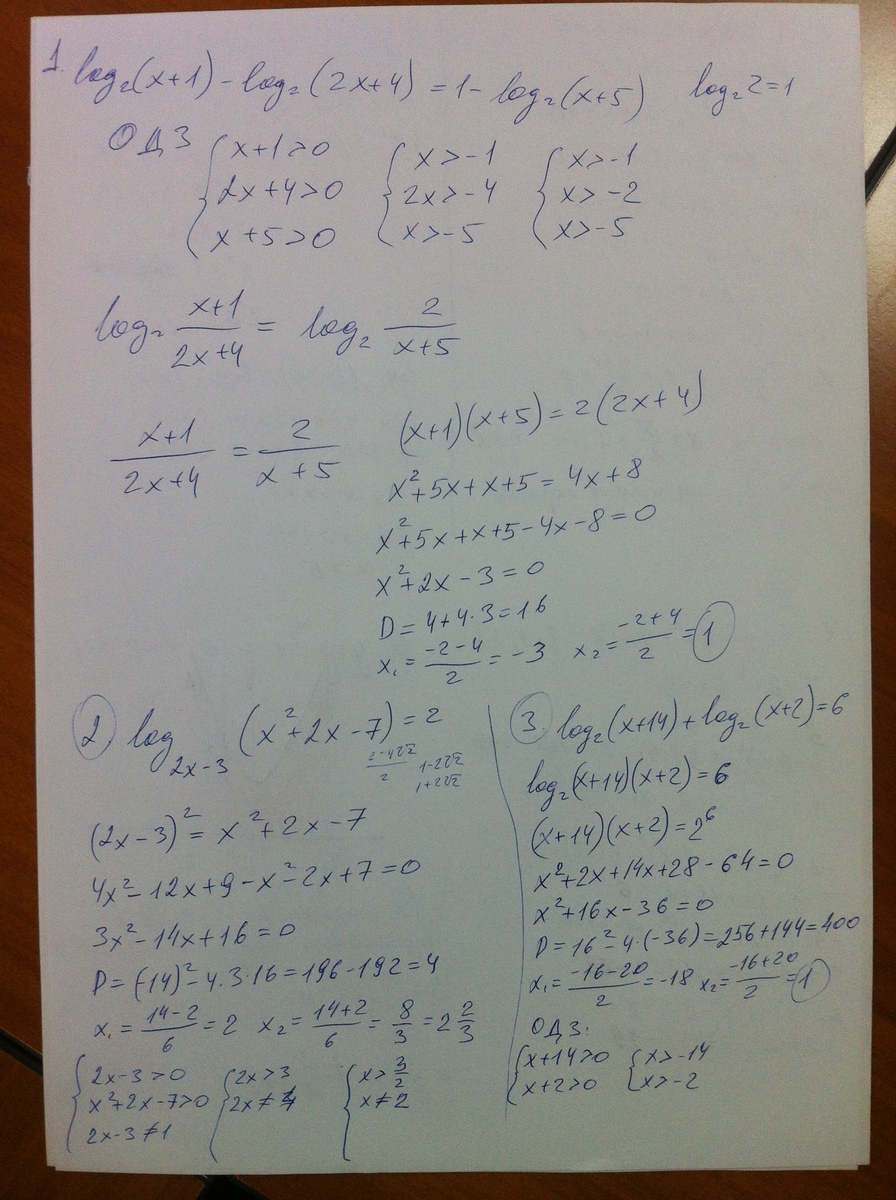 1. log₂(x+1) - log₂(2x+4) = 1 - log₂(x+5) log₂2=1
ОДЗ { x+1>0 { x>-1 { x>-1
2x+4>0 2x>-4 x>-2
x+5>0 x>-5 x>-5
log₂ (x+1)/(2x+4) = log₂ 2/(x+5)
(x+1)/(2x+4) = 2/(x+5)
(x+1)(x+5)=2(2x+4)
x²+5x+x+5=4x+8
x²+5x+x+5-4x-8=0
x²+2x-3=0
D=4+4·3=16
x₁=(-2-4)/2=-3 x₂=(-2+4)/2=1
2) log₂ₓ₋₃ (x²+2x-7)=2
(2-4√2)/2 1-2√2
1+2√2
(2x-3)²=x²+2x-7
4x²-12x+9-x²-2x+7=0
3x²-14x+16=0
D=(-14)²-4·3·16=196-192=4
x₁=(14-2)/6=2 x₂=(14+2)/6=8/3=2 2/3
{ 2x-3>0 { 2x>3 { x>3/2
x²+2x-7>0 2x≠4 x≠2
2x-3≠1
3. log₂(x+14)+log₂(x+2)=6
log₂(x+14)(x+2)=6
(x+14)(x+2)=2⁶
x²+2x+14x+28-64=0
x²+16x-36=0
D=16²-4·(-36)=256+144=400
x₁=(-16-20)/2=-18 x₂=(-16+20)/2=1
ОДЗ.
{ x+14>0 { x>-14
x+2>0 x>-2